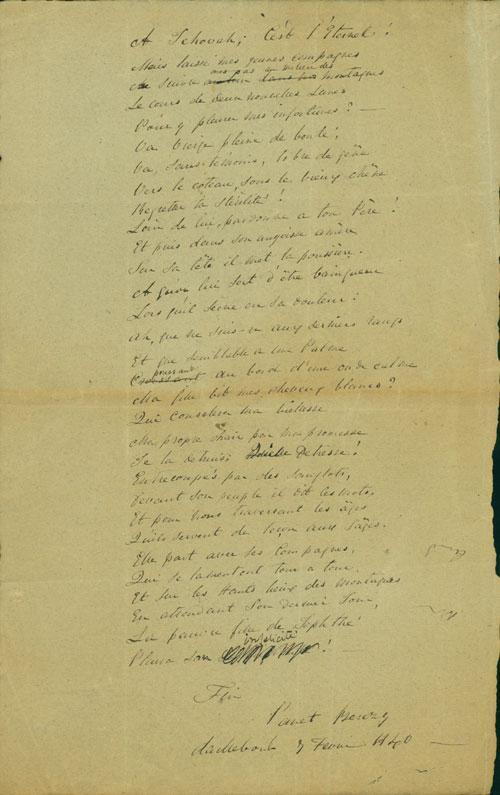 A Jehovah; C'est l'Eternel!
Mais laisse mes jeunes compagnes
Me suivre au milieu des montagnes
Le cours de deux nouvelles Lunes
Pour y pleurer mes infortunes? —
Va Vierge pleine de bonté,
Va, sans témoins, libre de gêne
Vers le côteau, sous le vieux chêne
Regretter ta Stérilité!
Loin de lui, pardonne a ton Père!
Et puis dans son angoisse amère
Sur sa tête il met la poussière.
A quoi lui sert d'être vainqueur
Lorsqu'il seme en sa douleur:
Ah, que ne suis-je aux derniers rangs
Et que semblable a une Palme
Croissant poussant au bord d'une onde calme
Ma fille vit mes cheveux blancs?
Qui consolera ma vielesse
Ma propre chair par ma promesse
Je la détruis! Quelle Detresse!
Entrecoupés par des sanglots,
Devant son peuple il dit ces mots,
Et pour vous traversant les âges
Qu'ils servent de leçon aux Sages.
Elle part avec ses Compagnes,
Qui se lamentent tour a tour,
Et sur les Hauts lieux des montagnes
En attendant son dernier Jour,
La pauvre fille de Jephthé
Pleura son infelicité!
Fin
Panet
Février 1840 —